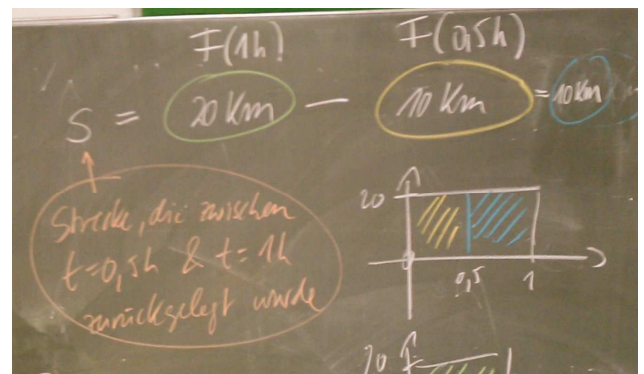 F(1h) F(0,5h)
S = 20 Km − 10 Km = 10 Km
Strecke, die zwischen
t=0,5h & t=1h
zurückgelegt wurde
20
0
0,5 1
20